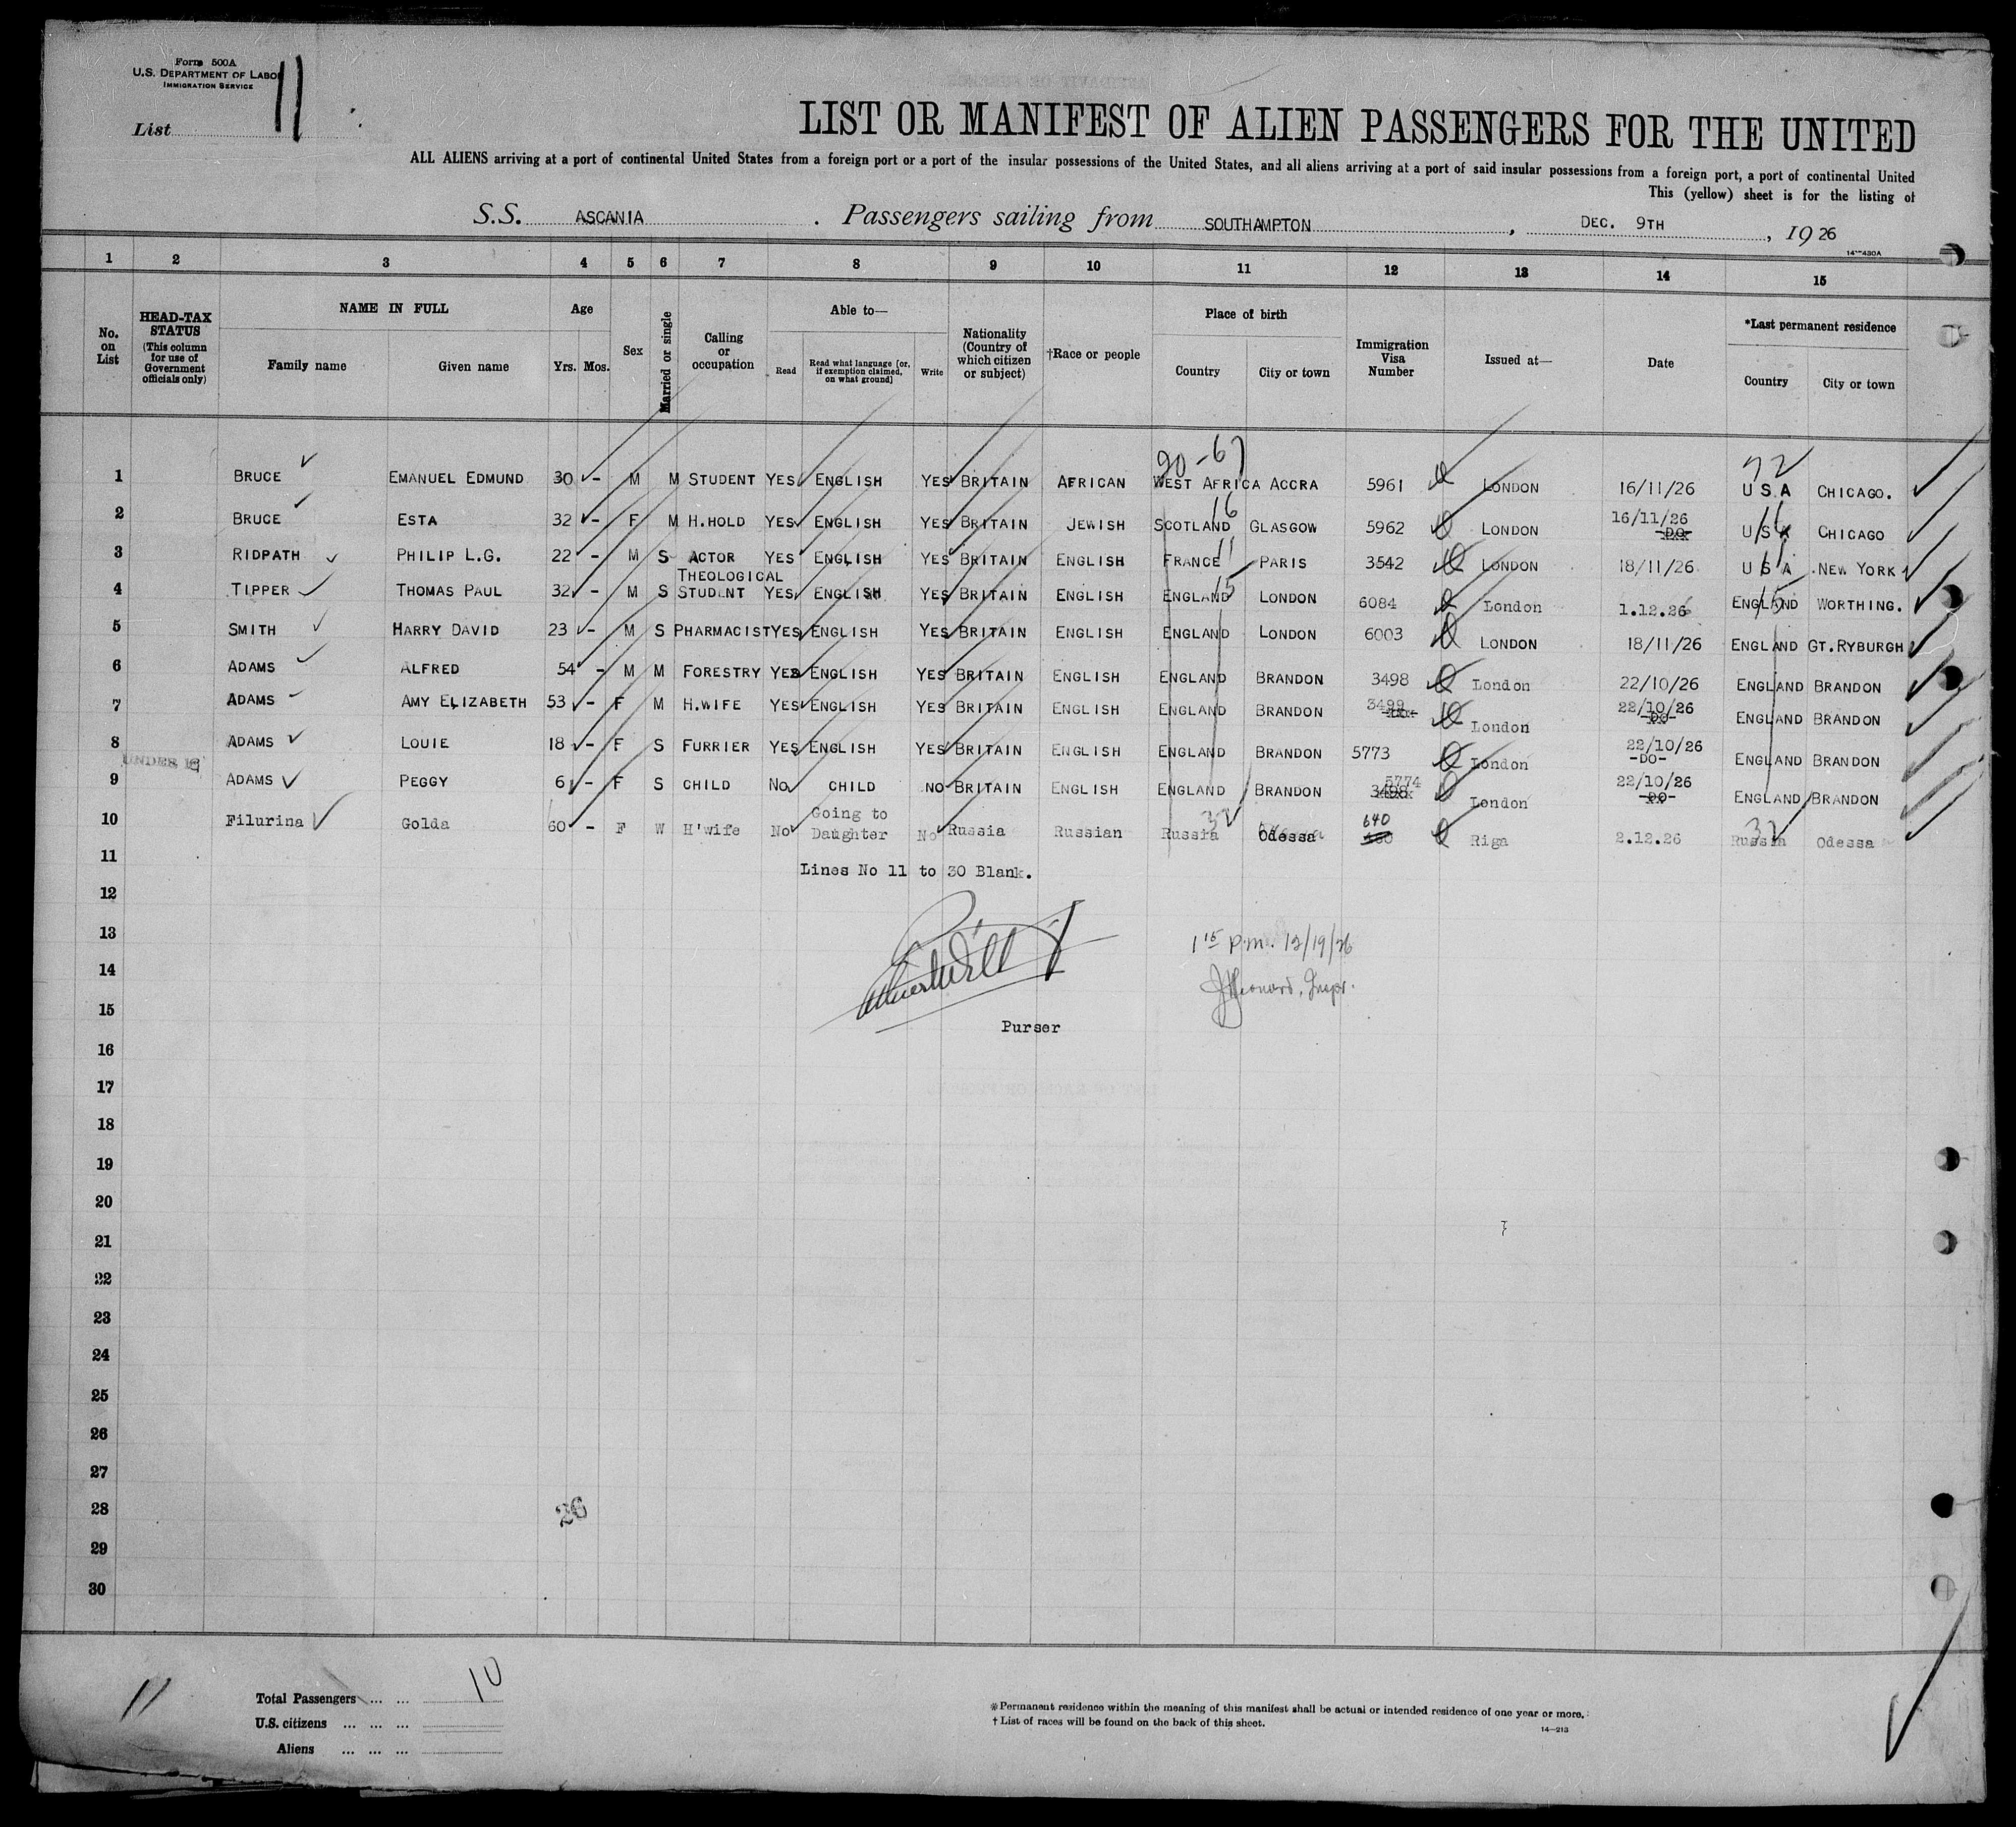 Form 500A
U.S. DEPARTMENT OF LABOR
IMMIGRATION SERVICE
List 11
LIST OR MANIFEST OF ALIEN PASSENGERS FOR THE UNITED
ALL ALIENS arriving at a port of continental United States from a foreign port or a port of the insular possessions of the United States, and all aliens arriving at a port of said insular possessions from a foreign port, a port of continental United
This (yellow) sheet is for the listing of
S.S. ASCANIA . Passengers sailing from SOUTHAMPTON , DEC. 9TH , 1926
14-430A
1 2 3 4 5 6 7 8 9 10 11 12 13 14 15
No. on List
HEAD-TAX STATUS (This column for use of Government officials only)
NAME IN FULL
Family name Given name
Age
Yrs. Mos.
Sex
Married or single
Calling or occupation
Able to—
Read Read what language [or, if exemption claimed, on what ground] Write
Nationality (Country of which citizen or subject)
†Race or people
Place of birth
Country City or town
Immigration Visa Number
Issued at—
Date
*Last permanent residence
Country City or town
90-67 72
1 BRUCE EMANUEL EDMUND 30 - M M STUDENT YES ENGLISH YES BRITAIN AFRICAN WEST AFRICA ACCRA 5961 LONDON 16/11/26 U S A CHICAGO.
16
2 BRUCE ESTA 32 - F M H.HOLD YES ENGLISH YES BRITAIN JEWISH SCOTLAND GLASGOW 5962 LONDON 16/11/26 -DO- U S A CHICAGO
11
3 RIDPATH PHILIP L.G. 22 - M S ACTOR YES ENGLISH YES BRITAIN ENGLISH FRANCE PARIS 3542 LONDON 18/11/26 U S A NEW YORK
15 15
4 TIPPER THOMAS PAUL 32 - M S THEOLOGICAL STUDENT YES ENGLISH YES BRITAIN ENGLISH ENGLAND LONDON 6084 London 1.12.26 ENGLAND WORTHING.
5 SMITH HARRY DAVID 23 - M S PHARMACIST YES ENGLISH YES BRITAIN ENGLISH ENGLAND LONDON 6003 LONDON 18/11/26 ENGLAND GT.RYBURGH
6 ADAMS ALFRED 54 - M M FORESTRY YES ENGLISH YES BRITAIN ENGLISH ENGLAND BRANDON 3498 London 22/10/26 ENGLAND BRANDON
7 ADAMS AMY ELIZABETH 53 - F M H.WIFE YES ENGLISH YES BRITAIN ENGLISH ENGLAND BRANDON 3499 London 22/10/26 -DO- ENGLAND BRANDON
8 ADAMS LOUIE 18 - F S FURRIER YES ENGLISH YES BRITAIN ENGLISH ENGLAND BRANDON 5773 London 22/10/26 -DO- ENGLAND BRANDON
UNDER 16
9 ADAMS PEGGY 6 - F S CHILD NO CHILD NO BRITAIN ENGLISH ENGLAND BRANDON 5774 3498 London 22/10/26 -DO- ENGLAND BRANDON
32 640 32
10 Filurina Golda 60 - F W H'wife No Going to Daughter No Russia Russian Russia Odessa Riga 2.12.26 Russia Odessa
11 Lines No 11 to 30 Blank.
12
13 1 15 p.m. 12/19/26
14 Leonard, Inspr.
15 Purser
16
17
18
19
20
21
22
23
24
25
26
27
28 26
29
30
11
Total Passengers ... ... 10
U.S. citizens ... ... ...
Aliens ... ... ...
*Permanent residence within the meaning of this manifest shall be actual or intended residence of one year or more.
† List of races will be found on the back of this sheet.
14—213